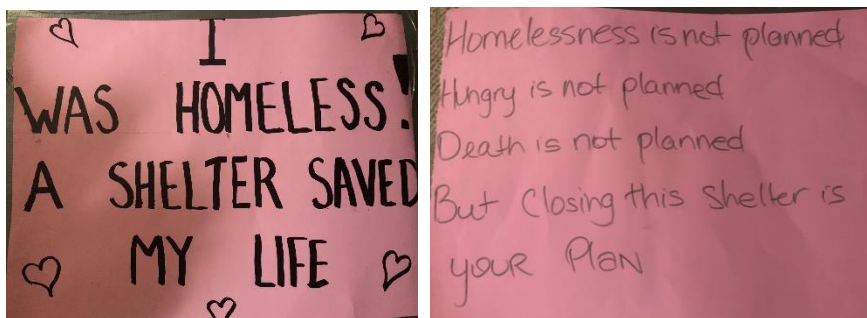 I
WAS HOMELESS!
A SHELTER SAVED
MY LIFE
Homelessness is not planned
Hungry is not planned
Death is not planned
But Closing this Shelter is
your Plan